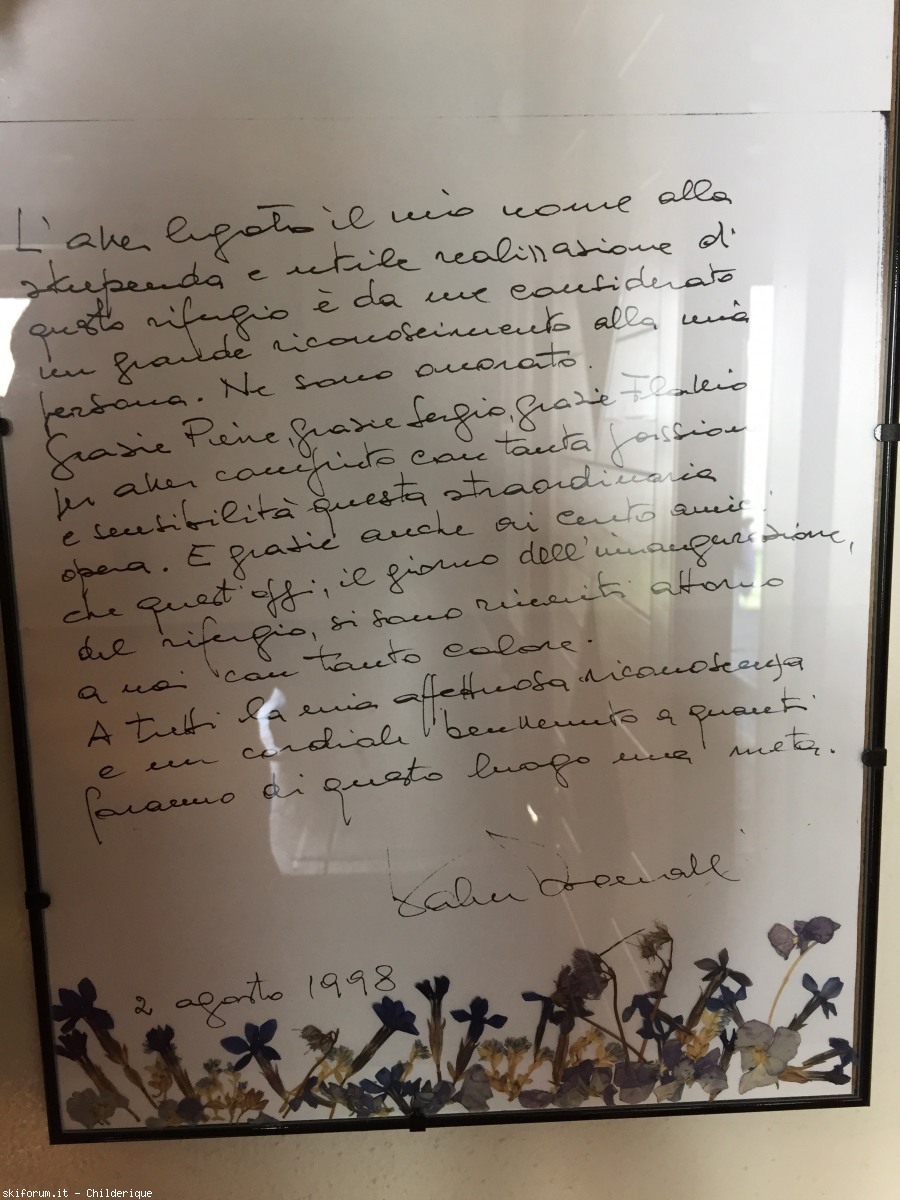 L'aver legato il mio nome alla
stupenda e utile realizzazione di
questo rifugio è da me considerato
un grande riconoscimento alla mia
persona. Ne sono onorato.
Grazie Pieve, grazie Sergio, grazie Flavio
per aver compiuto con tanta passion
e sensibilità questa straordinaria
opera. E grazie anche ai cento amici
che quest'oggi, il giorno dell'inaugurazione,
del rifugio, si sono riuniti attorno
a noi con tanto calore.
A tutti la mia affettuosa riconoscenza
e un cordiale benvenuto a quanti
faranno di questo luogo una meta.
Walter Bonatti
2 agosto 1998
skiforum.it - Childerique